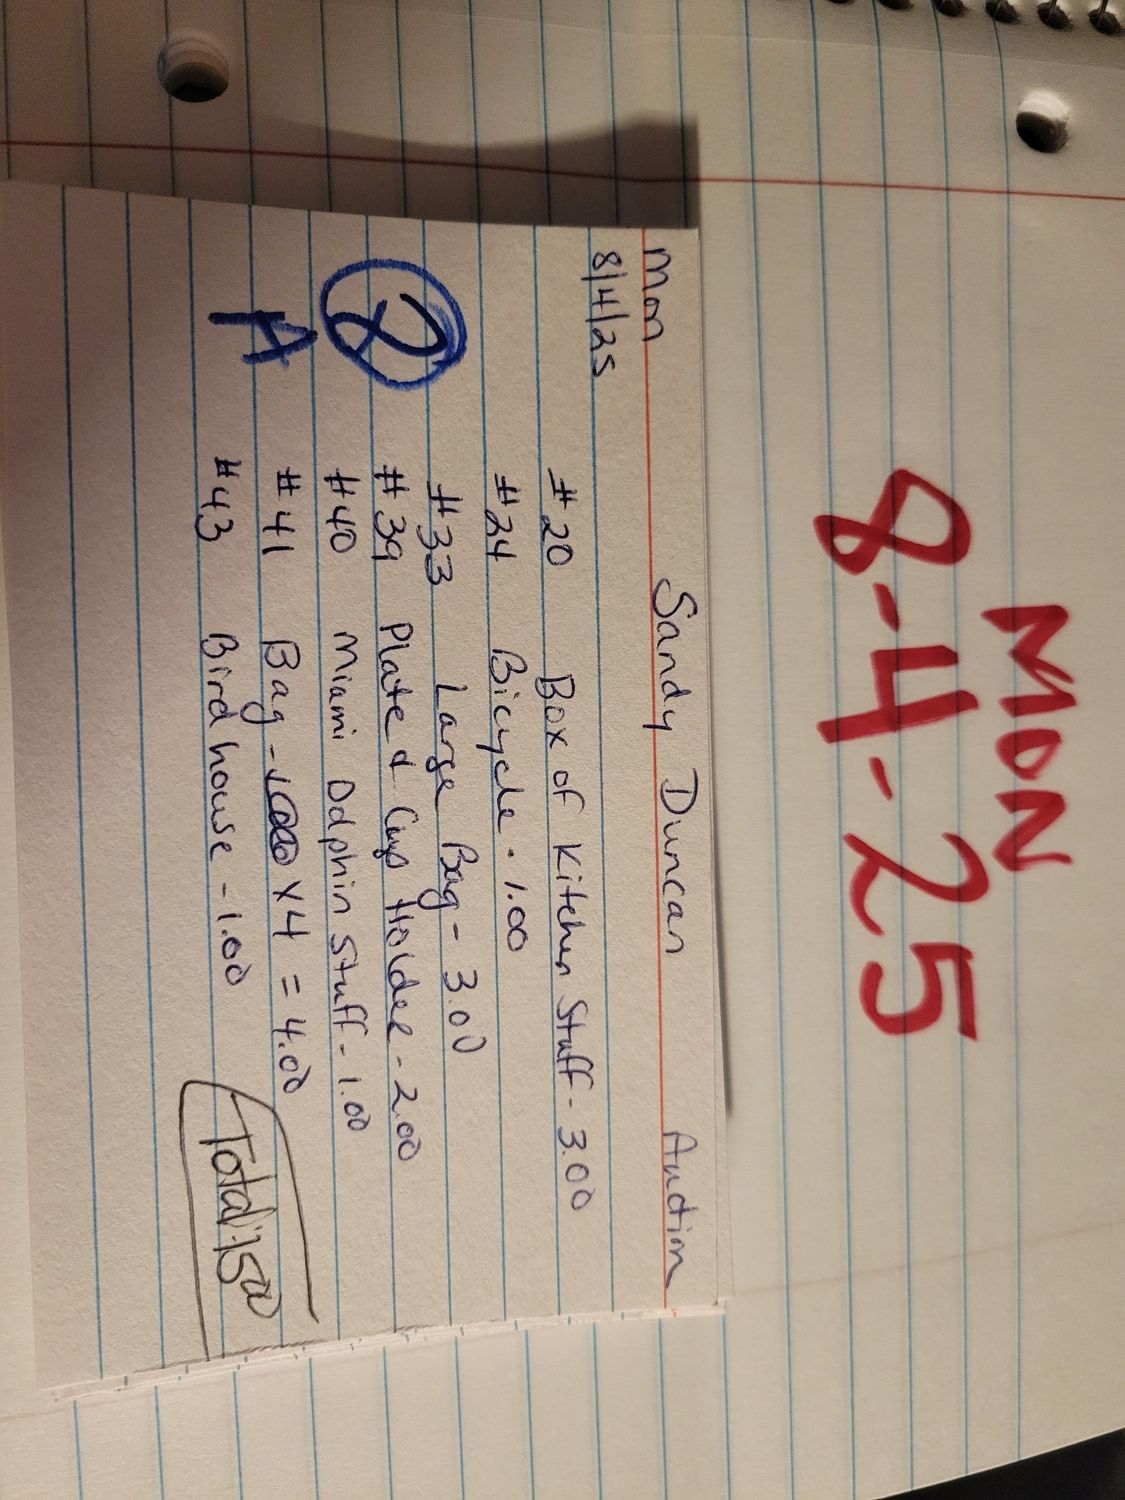 MON
8-4-25
Sandy Duncan Auction
Mon
8/4/25
#20 Box of Kitchen Stuff - 3.00
#24 Bicycle - 1.00
#33 Large Bag - 3.00
2
#39 Plate & Cup Holder - 2.00
#40 Miami Dolphin Stuff - 1.00
A
#41 Bag - x4 = 4.00
#43 Birdhouse - 1.00
Total: 15.00